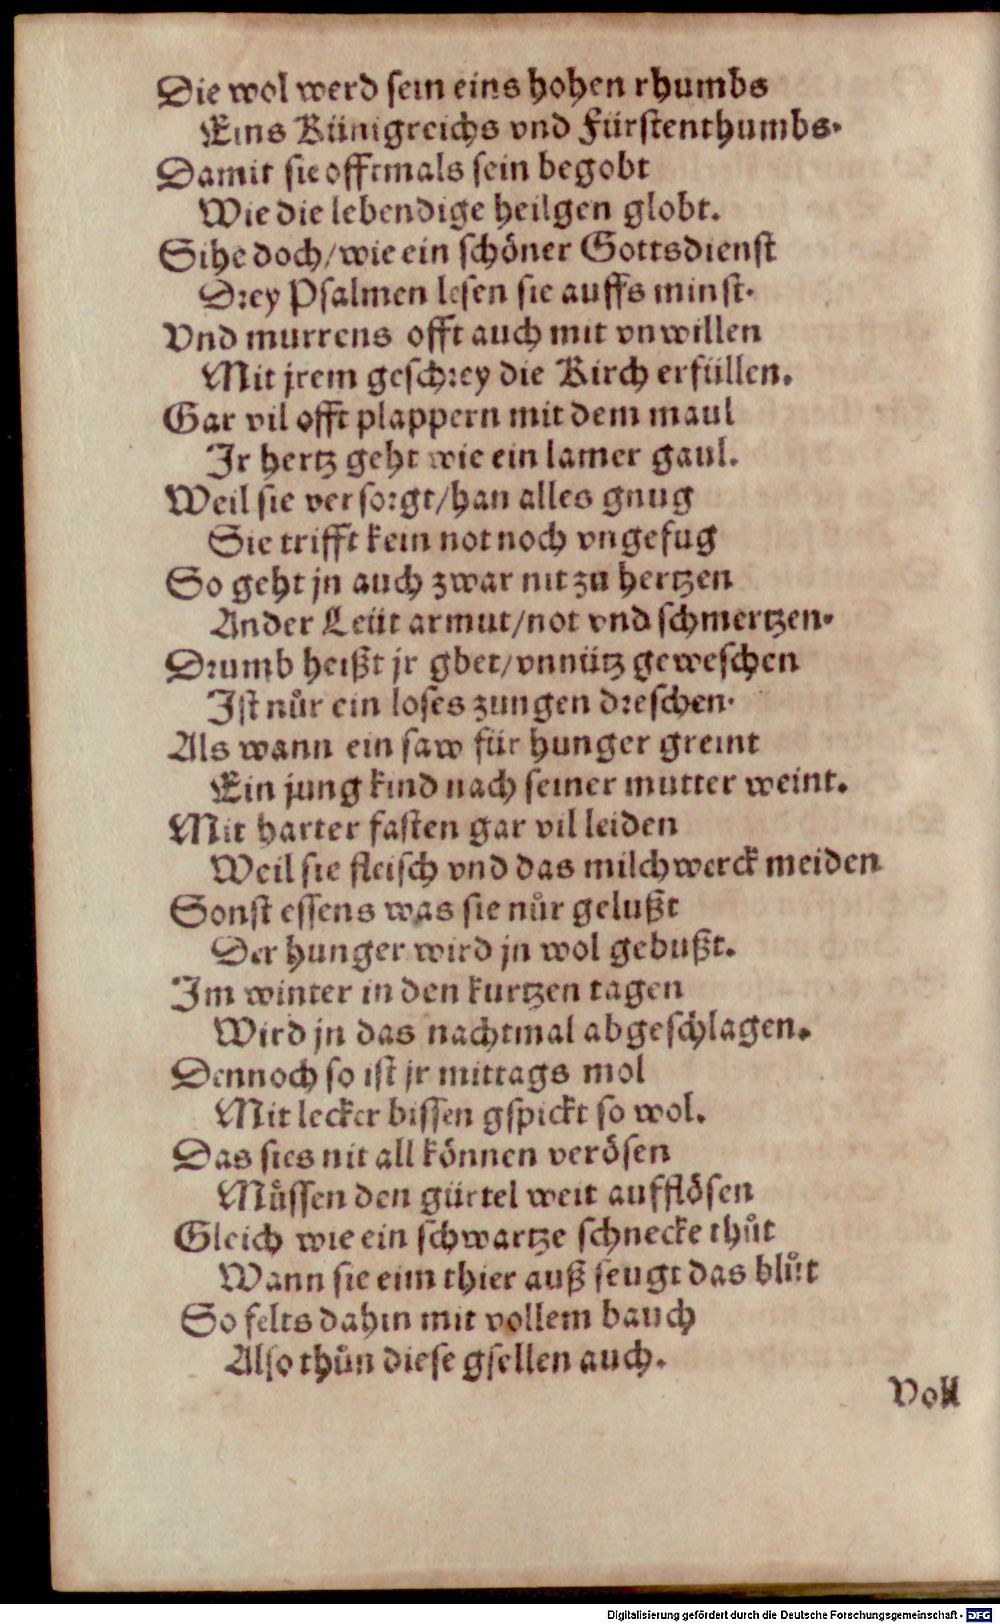 Die wol werd sein eins hohen rhumbs
Eins Künigreichs vnd Fürstenthumbs.
Damit sie offtmals sein begobt
Wie die lebendige heilgen globt.
Sihe doch/wie ein schöner Gottsdienst
Drey Psalmen lesen sie auffs minst.
Vnd murrens offt auch mit vnwillen
Mit jrem geschrey die Kirch erfüllen.
Gar vil offt plappern mit dem maul
Jr hertz geht wie ein lamer gaul.
Weil sie versorgt/han alles gnug
Sie trifft kein not noch vngefug
So geht jn auch zwar nit zu hertzen
Ander Leüt armut/not vnd schmertzen.
Drumb heißt jr gbet/vnnütz geweschen
Ist nůr ein loses zungen dreschen.
Als wann ein saw für hunger greint
Ein jung kind nach seiner mutter weint.
Mit harter fasten gar vil leiden
Weil sie fleisch vnd das milchwerck meiden
Sonst essens was sie nůr gelußt
Der hunger wird jn wol gebußt.
Im winter in den kurtzen tagen
Wird jn das nachtmal abgeschlagen.
Dennoch so ist jr mittags mol
Mit lecker bissen gspickt so wol.
Das sies nit all können verösen
Můssen den gürtel weit aufflösen
Gleich wie ein schwartze schnecke thůt
Wann sie eim thier auß seugt das blůt
So felts dahin mit vollem bauch
Also thůn diese gsellen auch.
Voll
Digitalisierung gefördert durch die Deutsche Forschungsgemeinschaft - DFG